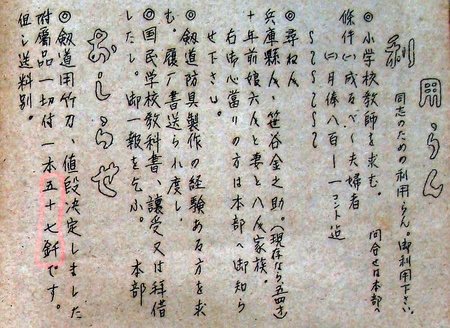 利用らん
同志のための利用らん。御利用下さい。
問合せは本部へ
◎小学校教師を求む。
條件(一)成るべく夫婦者
(二)月俸八百ー一コント迠
～～～～～
◎尋ね人
兵庫縣人、笹谷金之助。(現存なら五四才)
十年前娘六人と妻と八人家族。
右御心當りの方は本部へ御知ら
せ下さい。
◎劔道防具製作の経験ある方を求
む。履厂書送られ度し。
◎国民学校教科書、讓受又は拝借
したし。御一報を乞ふ。 本部
おしらせ
◎劔道用竹刀、値段決定しました
附屬品一切付一本五十七釬です。
但し送料別。